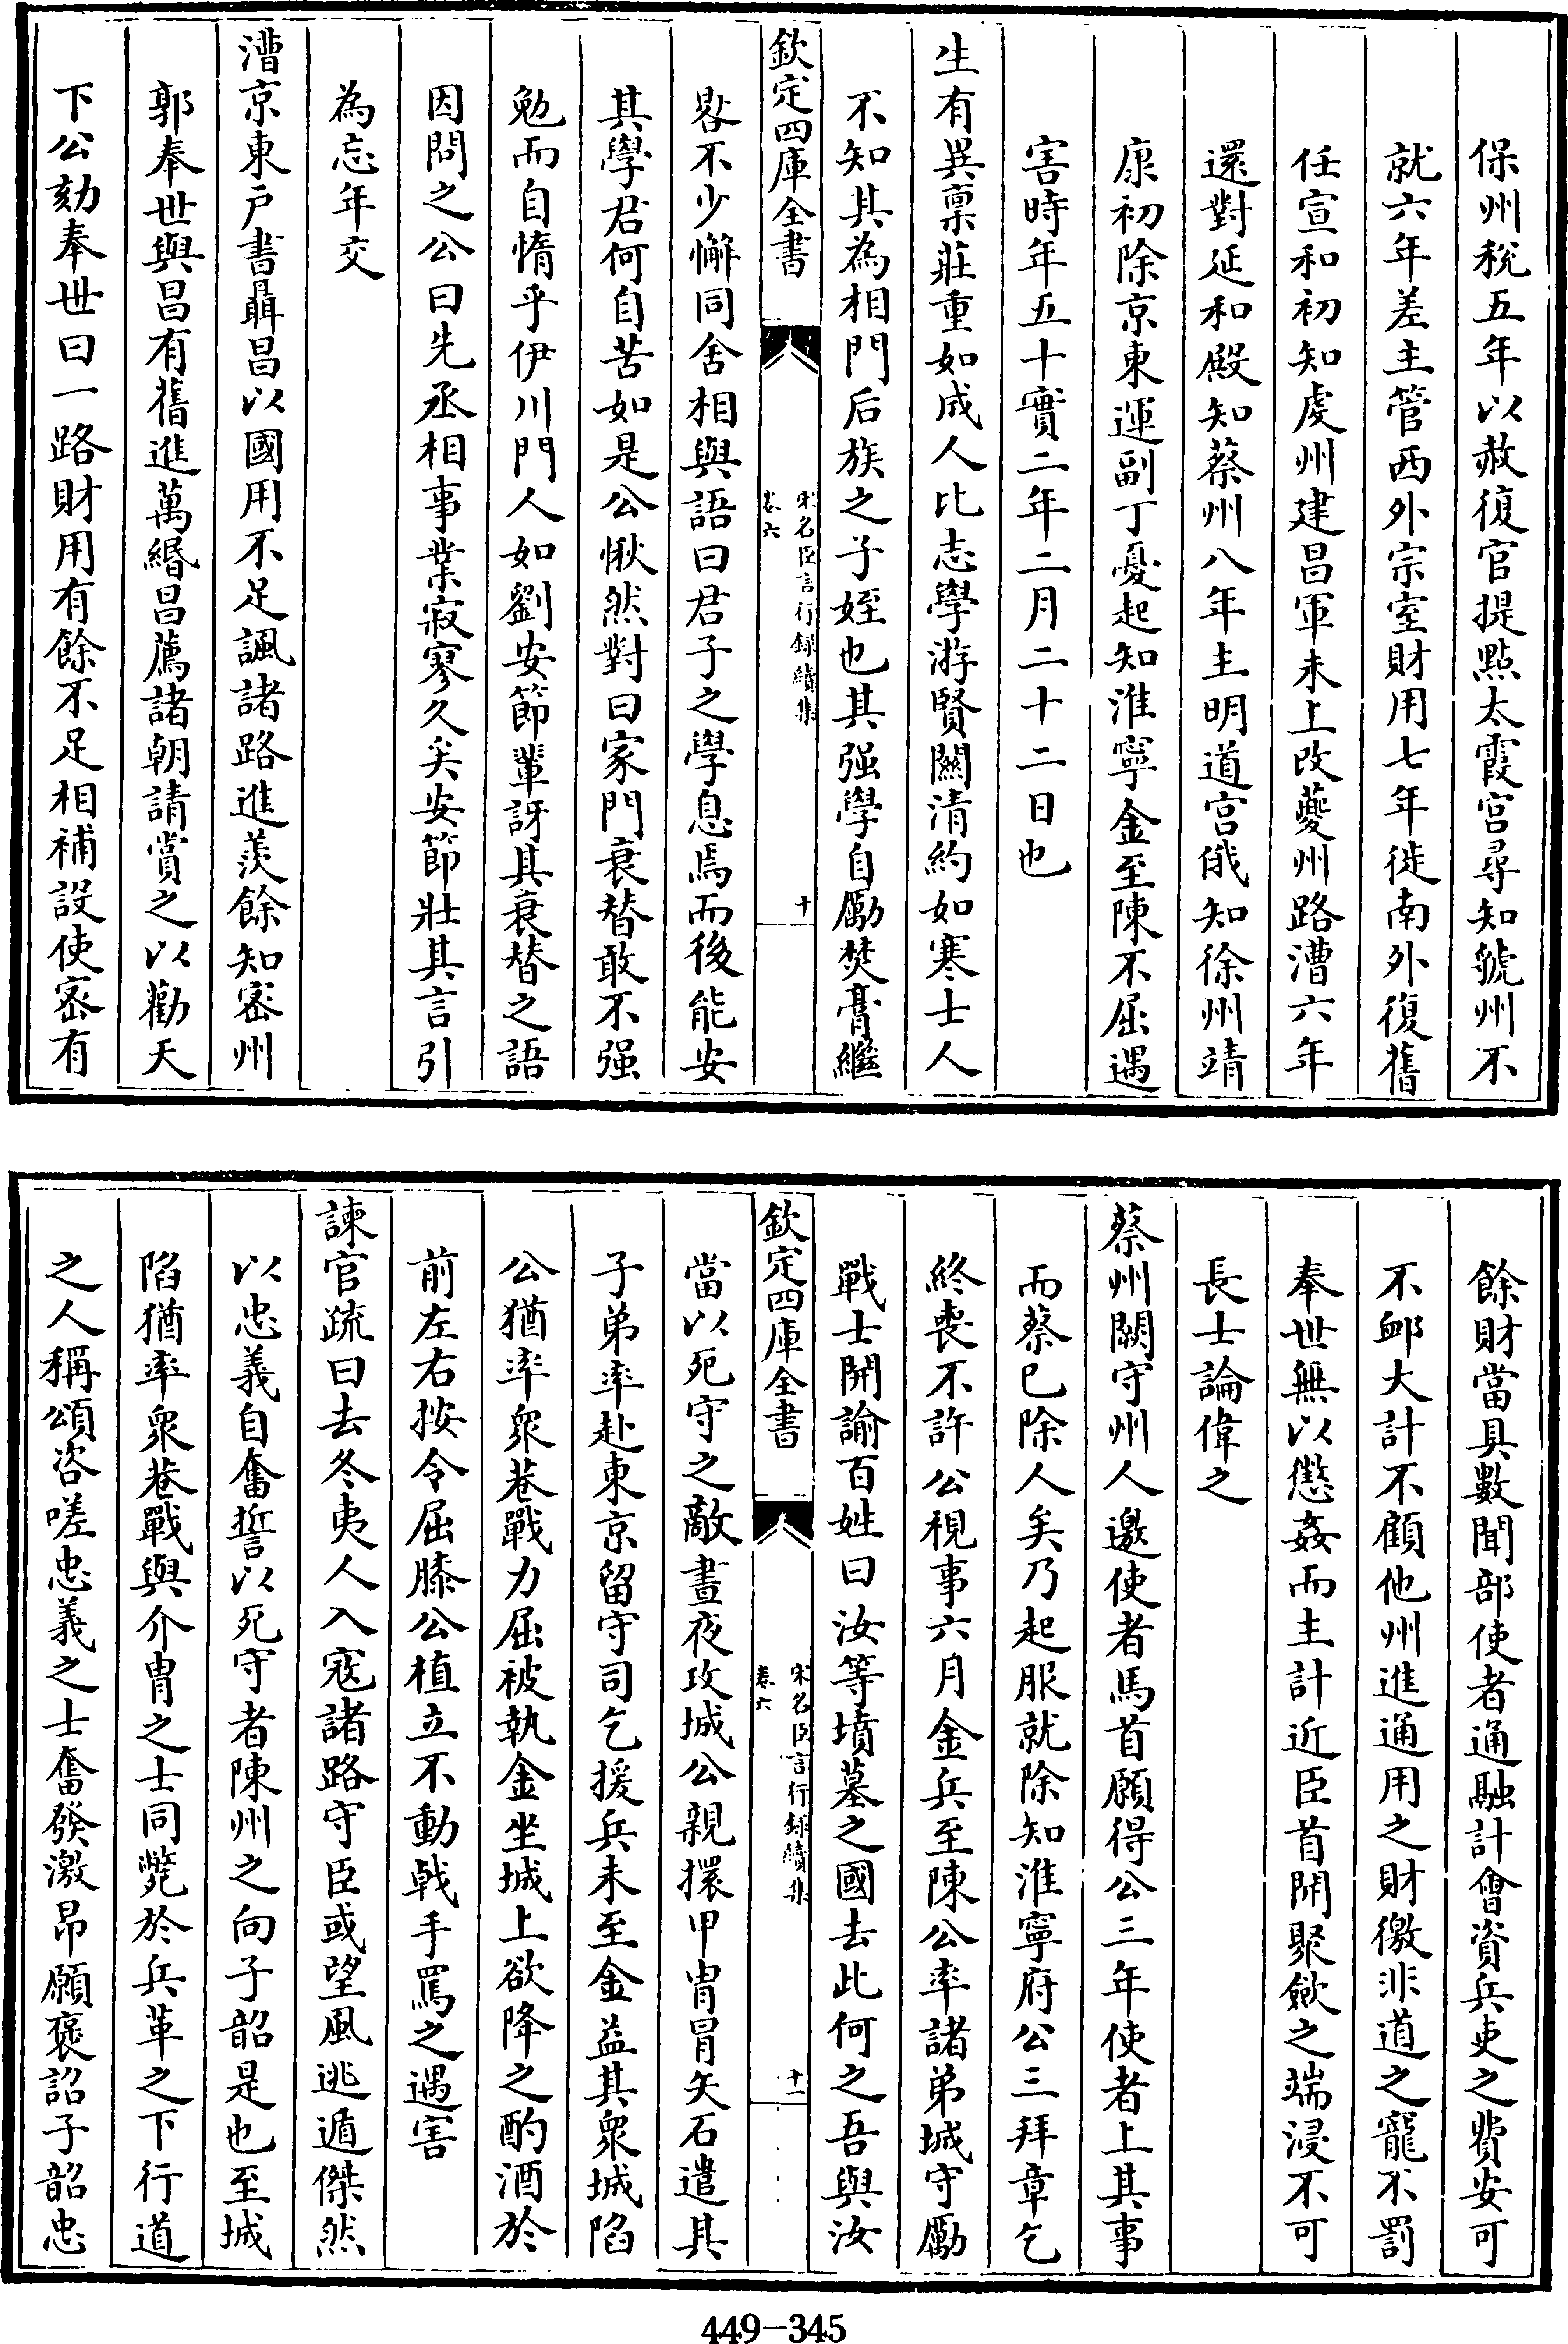 保州稅五年以赦復官提點太霞宮尋知虢州不
就六年差主管西外宗室財用七年徙南外復舊
任宣和初知處州建昌軍未上改夔州路漕六年
還對延和殿知蔡州八年主明道宮俄知徐州靖
康初除京東運副丁憂起知淮寧金至陳不屈遇
害時年五十實二年二月二十二日也
生有異稟莊重如成人比志學游賢關清約如寒士人
不知其為相門后族之子姪也其强學自勵焚膏繼
欽定四庫全書
宋名臣言行録續集
卷六
十
晷不少懈同舍相與語曰君子之學息焉而後能安
其學君何自苦如是公愀然對曰家門衰替敢不强
勉而自惰乎伊川門人如劉安節輩訝其衰替之語
因問之公曰先丞相事業寂寥久矣安節壯其言引
為忘年交
漕京東户書聶昌以國用不足諷諸路進羨餘知密州
郭奉世與昌有舊進萬緡昌薦諸朝請賞之以勸天
下公劾奉世曰一路財用有餘不足相補設使密有
餘財當具數聞部使者通融計會資兵吏之費安可
不䘏大計不顧他州進通用之財徼非道之寵不罰
奉世無以懲姦而主計近臣首開聚斂之端浸不可
長士論偉之
蔡州闕守州人邀使者馬首願得公三年使者上其事
而蔡已除人矣乃起服就除知淮寧府公三拜章乞
終喪不許公視事六月金兵至陳公率諸弟城守勵
戰士開諭百姓曰汝等墳墓之國去此何之吾與汝
欽定四庫全書
宋名臣言行録續集
卷六
十一
當以死守之敵晝夜攻城公親擐甲冑冒矢石遣其
子弟率赴東京留守司乞援兵未至金益其衆城陷
公猶率衆巷戰力屈被執金坐城上欲降之酌酒於
前左右按令屈膝公植立不動戟手罵之遇害
諫官疏曰去冬夷人入寇諸路守臣或望風逃遁傑然
以忠義自奮誓以死守者陳州之向子韶是也至城
陷猶率衆巷戰與介冑之士同斃於兵革之下行道
之人稱頌咨嗟忠義之士奮發激昂願褒詔子韶忠
449-345